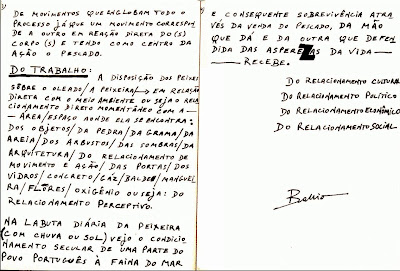 DE MOVIMENTOS QUE ENGLOBAM TODO O
PROCESSO JÁ QUE UM MOVIMENTO CORRESPON
DE A OUTRO EM REAÇÃO DIRETA DO(S)
CORPO(S) E TENDO COMO CENTRO DA
AÇÃO O PESCADO.
DO TRABALHO: A DISPOSIÇÃO DOS PEIXES
SÔBRE O OLEADO/A PEIXEIRA/ EM RELAÇÃO
DIRETA COM O MEIO AMBIENTE OU SEJA O RELA
CIONAMENTO DIRETO MOMENTÂNEO COM A
ÁREA/ESPAÇO AONDE ELA SE ENCONTRA:
DOS OBJETOS/DA PEDRA/DA GRAMA/DA
AREIA/DOS ARBUSTOS/DAS SOMBRAS/DA
ARQUITETURA/DO RELACIONAMENTO DE
MOVIMENTO E AÇÃO/DAS PORTAS/DOS
VIDROS/CONCRETO/GÁZ/BALDE/MANGUEI
RA/FLÔRES/OXIGÊNIO OU SEJA: DO
RELACIONAMENTO PERCEPTIVO.
NA LABUTA DIÁRIA DA PEIXEIRA
(COM CHUVA OU SOL) VEJO O CONDICIO
NAMENTO SECULAR DE UMA PARTE DO
POVO PORTUGUÊS À FAINA DO MAR
E CONSEQUENTE SOBREVIVÊNCIA ATRA
VÉS DA VENDA DO PESCADO, DA MÃO
QUE DÁ E DA OUTRA QUE DEFEN
DIDA DAS ASPEREZAS DA VIDA
RECEBE.
DO RELACIONAMENTO CULTURAL
DO RELACIONAMENTO POLÍTICO
DO RELACIONAMENTO ECONÔMICO
DO RELACIONAMENTO SOCIAL